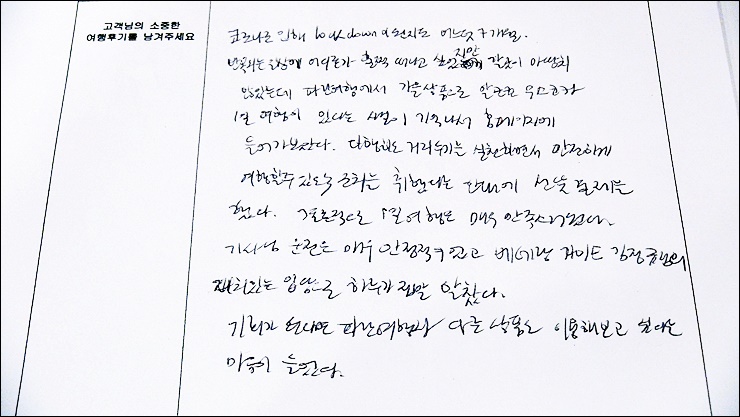 고객님의 소중한
여행후기를 남겨주세요
코로나로 인해 lockdown이 된지도 어느덧 7개월.
반복되는 일상에 어디론가 훌쩍 떠나고 싶었지만 갈곳이 마땅치
않았는데 파란여행에서 가을상품으로 알려진 우수코카
1일 여행이 있다는 사실이 기억나서 홈페이지에
들어가보았다. 다행히도 거리두기를 실천하면서 안전하게
여행할수 있도록 조치를 취했다는 안내에 선뜻 결제를
했다. 결론적으로 1일여행은 매우 만족스러웠다.
기사님 운전은 매우 안정적이었고 베테랑 가이드 님의
재치있는 입담으로 하루가 정말 알찼다.
기회가 된다면 파란여행사 다른 상품도 이용해보고 싶다는
마음이 들었다.